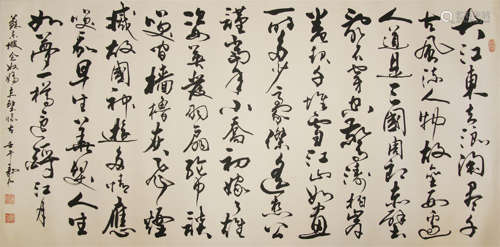 大江東去浪淘盡千
古風流人物故壘西邊
人道是三國周郎赤壁
亂石穿空驚濤拍岸
卷起千堆雪江山如畫
一時多少豪傑遙想公
瑾當年小喬初嫁了雄
姿英發羽扇綸巾談
笑間檣櫓灰飛煙
滅故國神遊多情應
笑我早生華髮人生
如夢一樽還酹江月
蘇東坡念奴嬌赤壁懷古 壬午